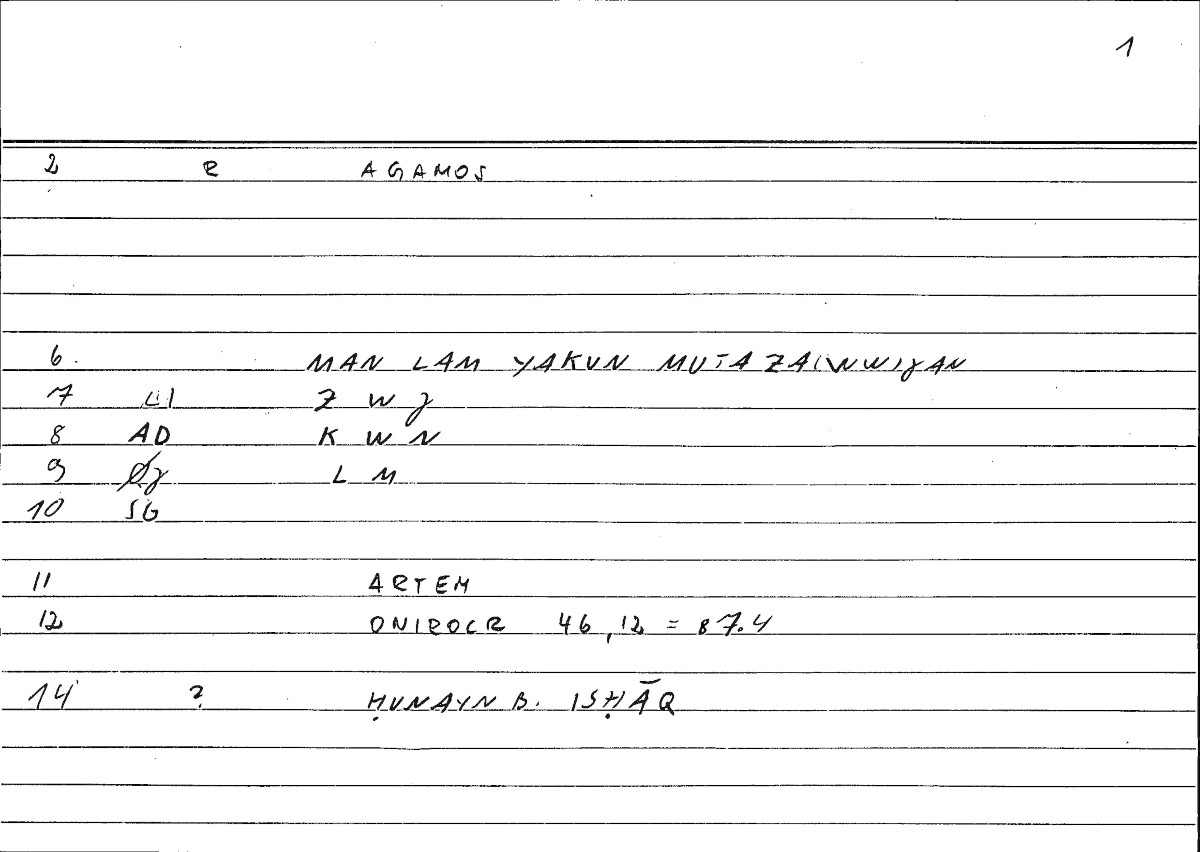 1
2 R AGAMOS
6. MAN LAM YAKUN MUTAZA(WW)JAN
7 LI Z W J
8 AD K W N
9 ØJ L M
10 SG
11 ARTEM
12 ONIROCR 46,12 = 87.4
14 ? ḤUNAYN B. ISḤĀQ